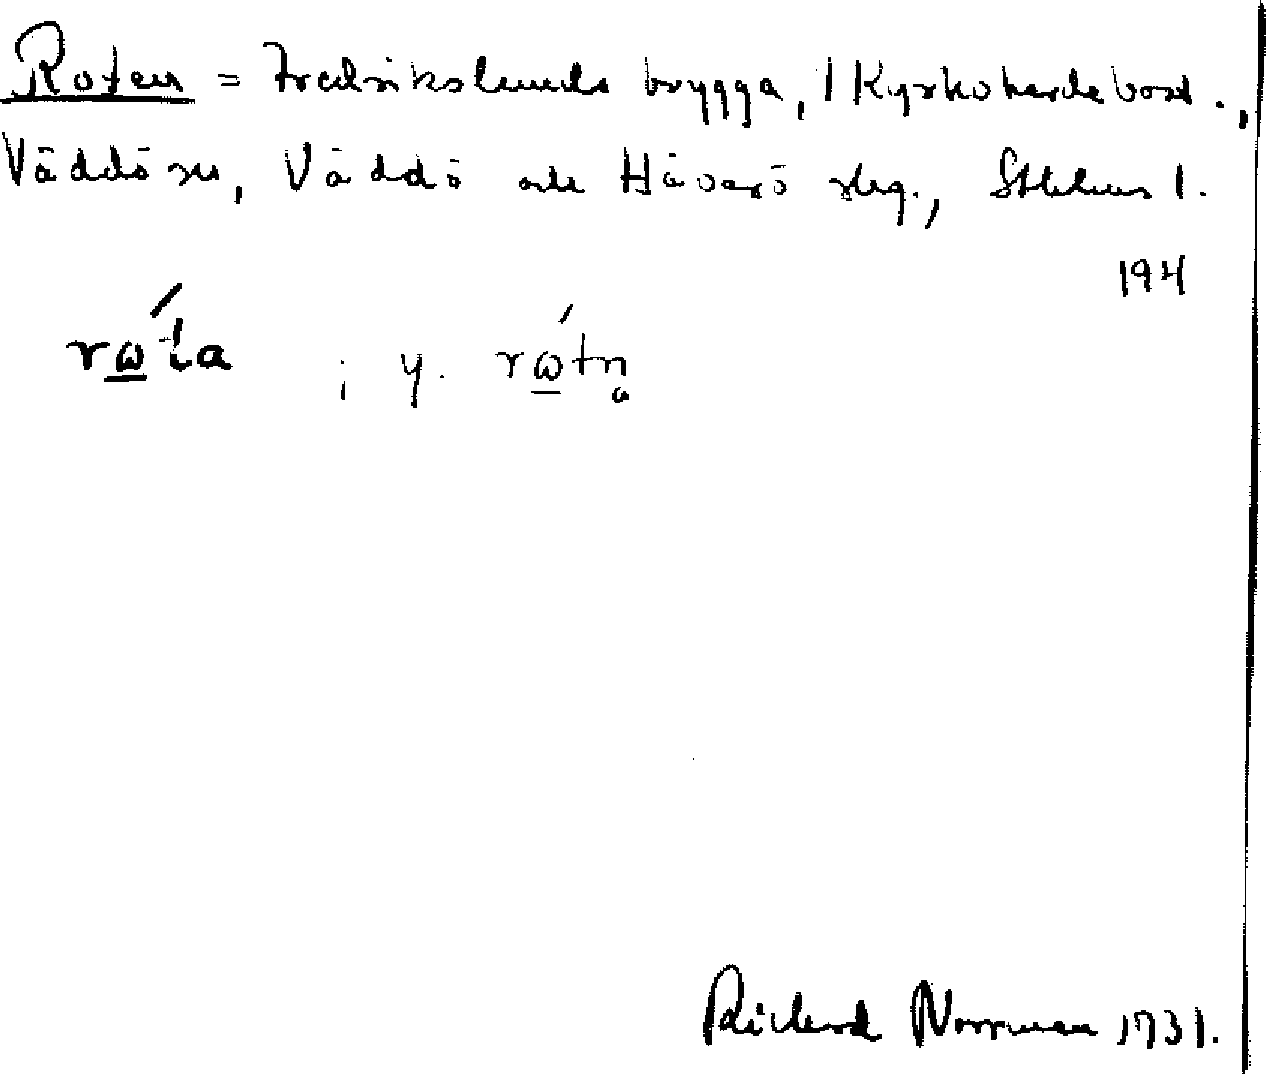 Roten = Fredrikslunds brygga, i Kyrkohardebost.,
Väddö sn, Väddö och Häverö slg., Sthlms l.
194
rώta ; y. rώtn̥
Richard Norrman 1931.